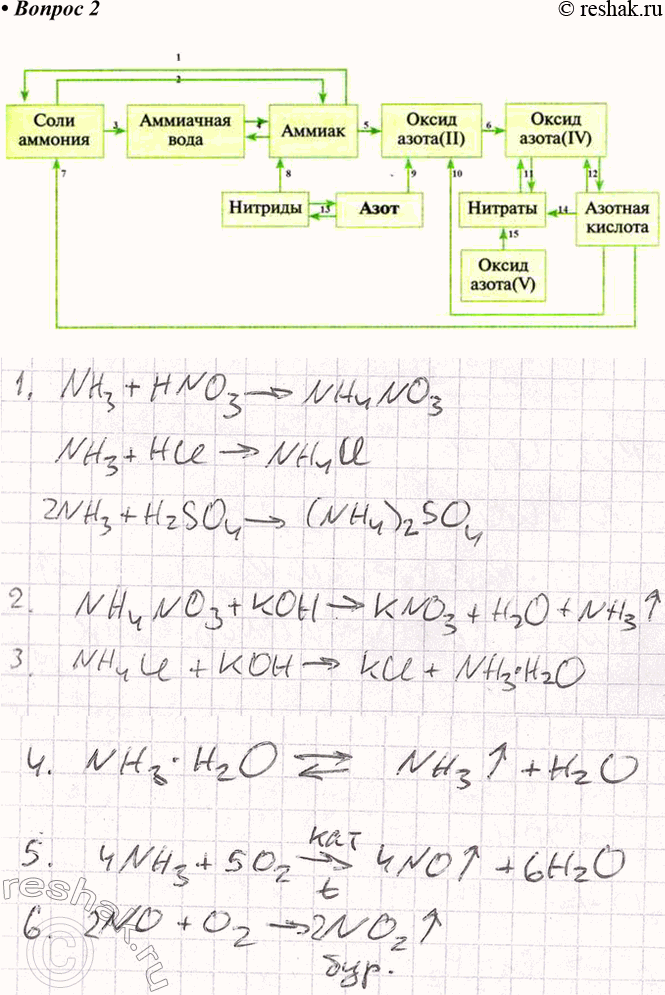 • Вопрос 2
© reshak.ru
1
2
Соли аммония
3
Аммиачная вода
4
Аммиак
5
Оксид азота(II)
6
Оксид азота(IV)
7
8
9
10
11
12
Нитриды
13
Азот
Нитраты
14
Азотная кислота
15
Оксид азота(V)
1. NH₃ + HNO₃ → NH₄NO₃
NH₃ + HCl → NH₄Cl
2NH₃ + H₂SO₄ → (NH₄)₂SO₄
2. NH₄NO₃ + KOH → KNO₃ + H₂O + NH₃↑
3. NH₄Cl + KOH → KCl + NH₃·H₂O
4. NH₃·H₂O ⇄ NH₃↑ + H₂O
кат
5. 4NH₃ + 5O₂ → 4NO↑ + 6H₂O
t
6. 2NO + O₂ → 2NO₂↑
бур.
© reshak.ru